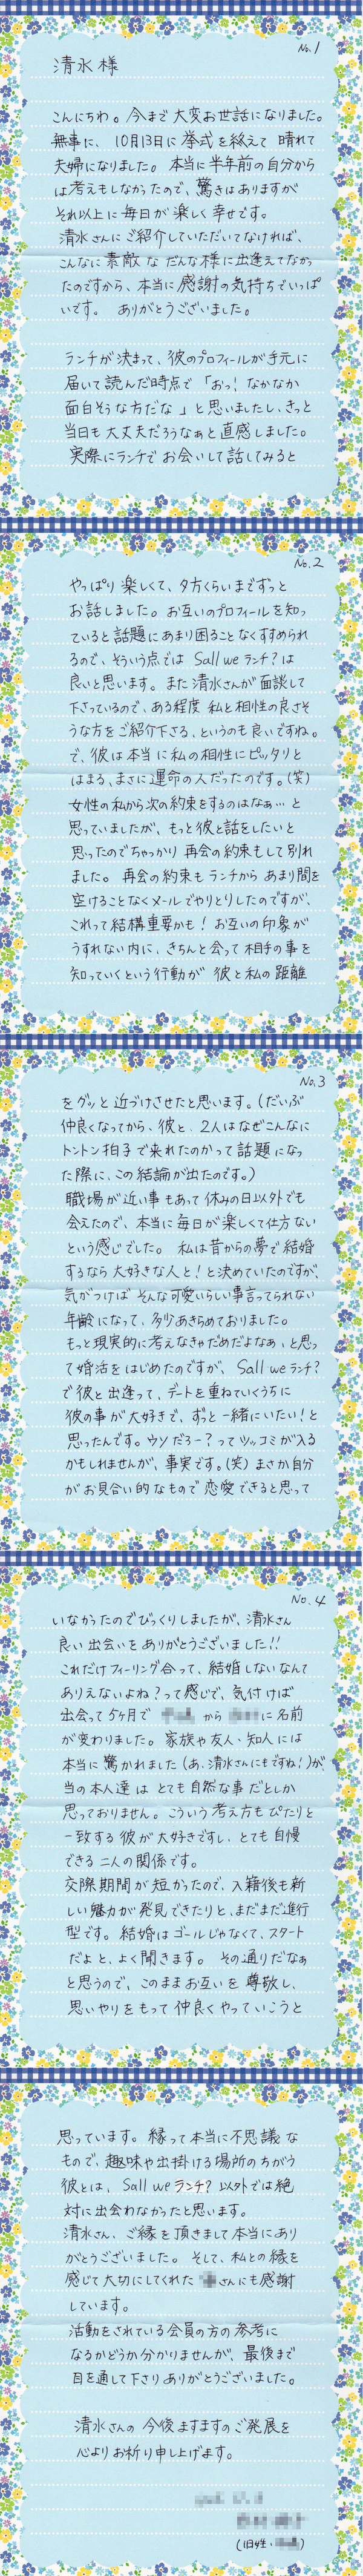 No.1
清水様
こんにちわ。今まで大変お世話になりました。
無事に、10月13日に挙式を終えて 晴れて
夫婦になりました。本当に半年前の自分から
は考えもしなかったので、驚きはありますが
それ以上に毎日が楽しく幸せです。
清水さんにご紹介していただいてなければ、
こんなに素敵なだんな様に出逢えてなかっ
たのですから、本当に感謝の気持ちでいっぱ
いです。ありがとうございました。
ランチが決まって、彼のプロフィールが手元に
届いて読んだ時点で「おっ!なかなか
面白そうな方だな」と思いましたし、きっと
当日も大丈夫だろうなぁと直感しました。
実際にランチでお会いして話してみると
No.2
やっぱり楽しくて、夕方くらいまでずっと
お話しました。お互いのプロフィールを知っ
ていると話題にあまり困ることなくすすめられ
るので、そういう点では Sall we ランチ?は
良いと思います。また清水さんが面談して
下さっているので、ある程度 私と相性の良さそ
うな方をご紹介下さる、というのも良いですね。
で、彼は本当に私の相性にピッタリと
はまる、まさに運命の人だったのです。(笑)
女性の私から次の約束をするのはなぁ…と
思っていましたが、もっと彼と話をしたいと
思ったのでちゃっかり 再会の約束もして別れ
ました。再会の約束もランチから あまり間を
空けることなくメールでやりとりしたのですが、
これって結構重要かも!お互いの印象が
うすれない内に、きちんと会って相手の事を
知っていくという行動が 彼と私の距離
No.3
をグッと近づけさせたと思います。(だいぶ
仲良くなってから、彼と、2人はなぜこんなに
トントン拍子で来れたのかって話題になっ
た際に、この結論が出たのです。)
職場が近い事もあって休みの日以外でも
会えたので、本当に毎日が楽しくて仕方ない
という感じでした。私は昔からの夢で結婚
するなら大好きな人と!と決めていたのですが、
気がつけば そんな可愛いらしい事言ってられない
年齢になって、多少あきらめておりました。
もっと現実的に考えなきゃだめだよなぁ、と思っ
て婚活をはじめたのですが、Sall we ランチ?
で彼と出逢って、デートを重ねていくうちに
彼の事が大好きで、ずっと一緒にいたい!と
思ったんです。ウソだろー?ってツッコミが入る
かもしれませんが、事実です。(笑)まさか自分
がお見合い的なもので恋愛できると思って
No.4
いなかったのでびっくりしましたが、清水さん
良い出会いをありがとうございました!!
これだけフィーリング合って、結婚しないなんて
ありえないよね?って感じで、気付けば
出会って5ヶ月で から に名前
が変わりました。家族や友人・知人には
本当に驚かれました(あ、清水さんにもですね!)が
当の本人達はとても自然な事だとしか
思っておりません。こういう考え方もぴたりと
一致する彼が大好きですし、とても自慢
できる二人の関係です。
交際期間が短かったので、入籍後も新
しい魅力が発見できたりと、まだまだ進行
型です。結婚はゴールじゃなくて、スタート
だよと、よく聞きます。その通りだなぁ
と思うので、このままお互いを尊敬し、
思いやりをもって仲良くやっていこうと
思っています。縁って本当に不思議な
もので、趣味や出掛ける場所のちがう
彼とは、Sall we ランチ?以外では絶
対に出会わなかったと思います。
清水さん、ご縁を頂きまして本当にあり
がとうございました。そして、私との縁を
感じて大切にしてくれた さんにも感謝
しています。
活動をされている会員の方の参考に
なるかどうか分かりませんが、最後まで
目を通して下さりありがとうございました。
清水さんの今後ますますのご発展を
心よりお祈り申し上げます。
(旧姓・ )